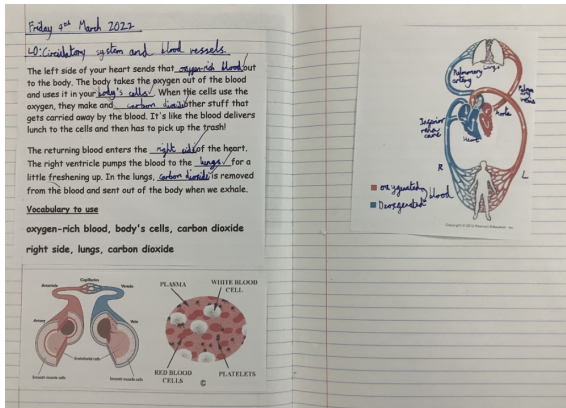 Friday 4th March 2022
LO: Circulatory system and blood vessels.
The left side of your heart sends that oxygen-rich blood out
to the body. The body takes the oxygen out of the blood
and uses it in your body's cells. When the cells use the
oxygen, they make and carbon dioxide other stuff that
gets carried away by the blood. It's like the blood delivers
lunch to the cells and then has to pick up the trash!
The returning blood enters the right side of the heart.
The right ventricle pumps the blood to the lungs for a
little freshening up. In the lungs, carbon dioxide is removed
from the blood and sent out of the body when we exhale.
Vocabulary to use
oxygen-rich blood, body's cells, carbon dioxide
right side, lungs, carbon dioxide
Capillaries
Arteriole
Venule
Artery
Vein
Endothelial cells
Smooth muscle cells
Smooth muscle cells
PLASMA
WHITE BLOOD
CELL
RED BLOOD
CELLS
PLATELETS
©
Lungs
Pulmonary
artery
Aorta
Inferior
Heart
R
L
blood